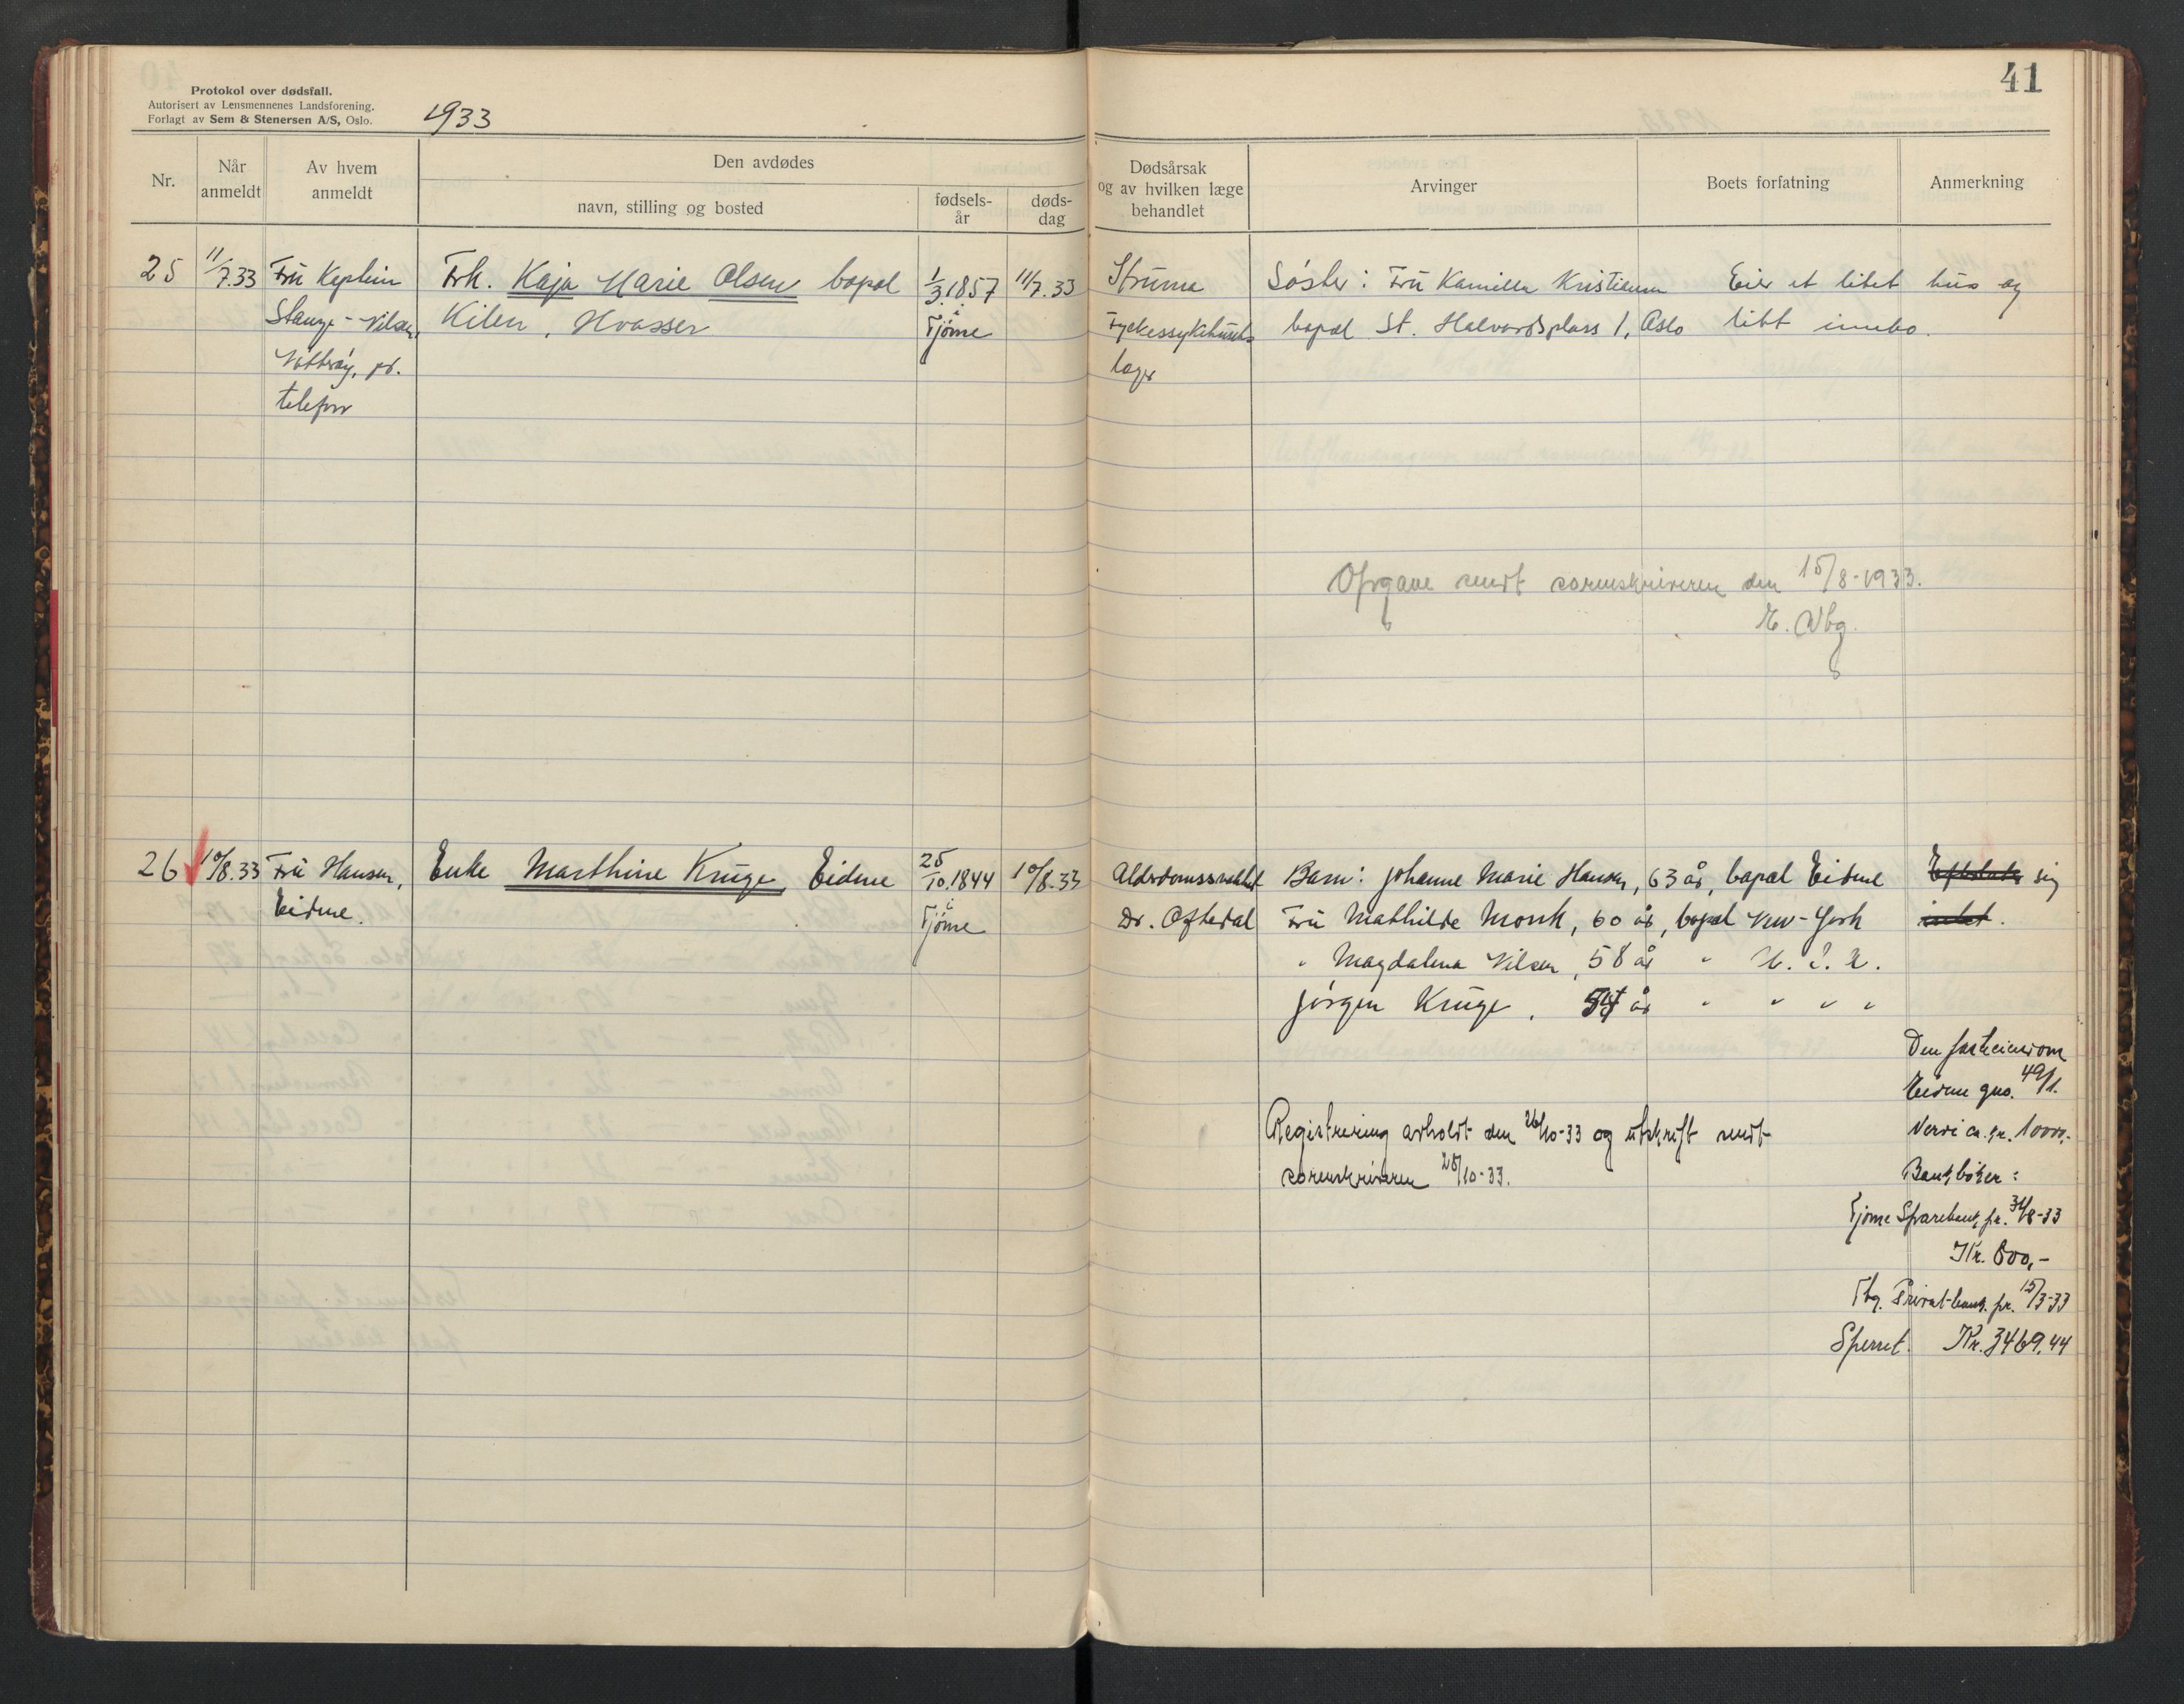 41
Protokol over dødsfall.
Autorisert av Lensmennenes Landsforening.
Forlagt av Sem & Stenersen A/S, Oslo.
1933
Nr.
Når anmeldt
Av hvem anmeldt
Den avdødes
navn, stilling og bosted
fødsels-år
døds-dag
Dødsårsak og av hvilken læge behandlet
Arvinger
Boets forfatning
Anmerkning
25 11/7.33 Fru Kaptein Frk. Kaja Marie Olsen bopæl 1/3.1857 11/7.33 Struma Søster: Fru Kamilla Kristiansen Eier et litet hus og
Stange-Nilsen, Kilen, Hvasser i Tjøme bopæl St. Halvardsplass 1, Oslo litt innbo.
Nøtterøy, pr. læge
telefon
Opgave sendt sorenskriveren den 15/8-1933.
26 10/8.33 Fru Hansen, Enke Marthine Kruge, Eidene 25/10.1844 10/8.33 Alderdomssvakhet Barn: Johanne Marie Hansen, 63 år, bopæl Eidene Efterlater sig
Eidene. i Tjøme Dr. Oftedal Fru Mathilde Monk, 60 år, bopæl New-York intet.
" Magdalena Nilsen, 58 år "
Jørgen Kruge, år " " " "
Den faste eiendom
Eidene gno. 49/1.
Verdi ca. kr. 10000,-
Registrering avholdt den 26/10-33 og utskrift sendt
sorenskriveren 28/10-33.
Bankbøker:
Tjøme Sparebank, pr. 31/8-33
Kr. 800,-
Tbg. Privat-bank. pr. 15/3-33
Sperret. Kr. 3469,44